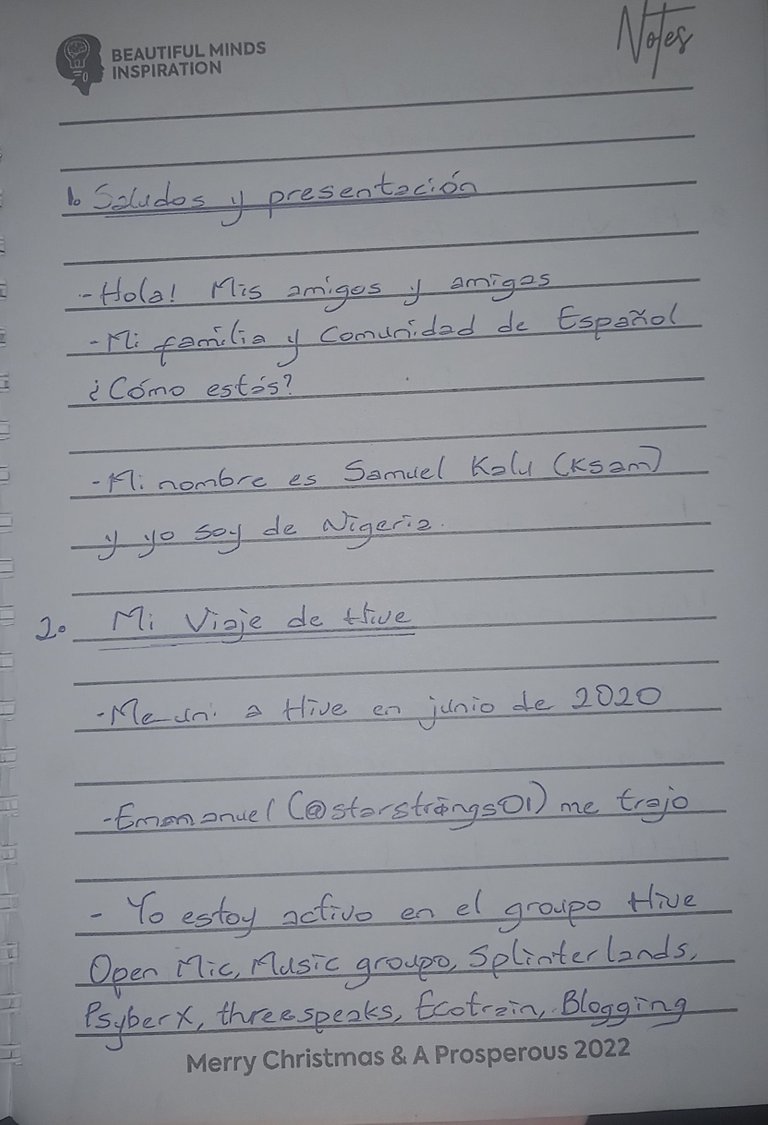 BEAUTIFUL MINDS
INSPIRATION
Notes
1. Saludos y presentación
- Hola! Mis amigos y amigas
- Mi familia y Comunidad de Español
¿Cómo estás?
- Mi nombre es Samuel Kalu (Ksam)
y yo soy de Nigeria.
2. Mi Viaje de Hive
- Me uni a Hive en junio de 2020
- Emmanuel (@starstrings01) me trajo
- Yo estoy activo en el groupo Hive
Open Mic, Music groupo, Splinterlands,
PsyberX, threespeaks, Ecotrain, Blogging
Merry Christmas & A Prosperous 2022